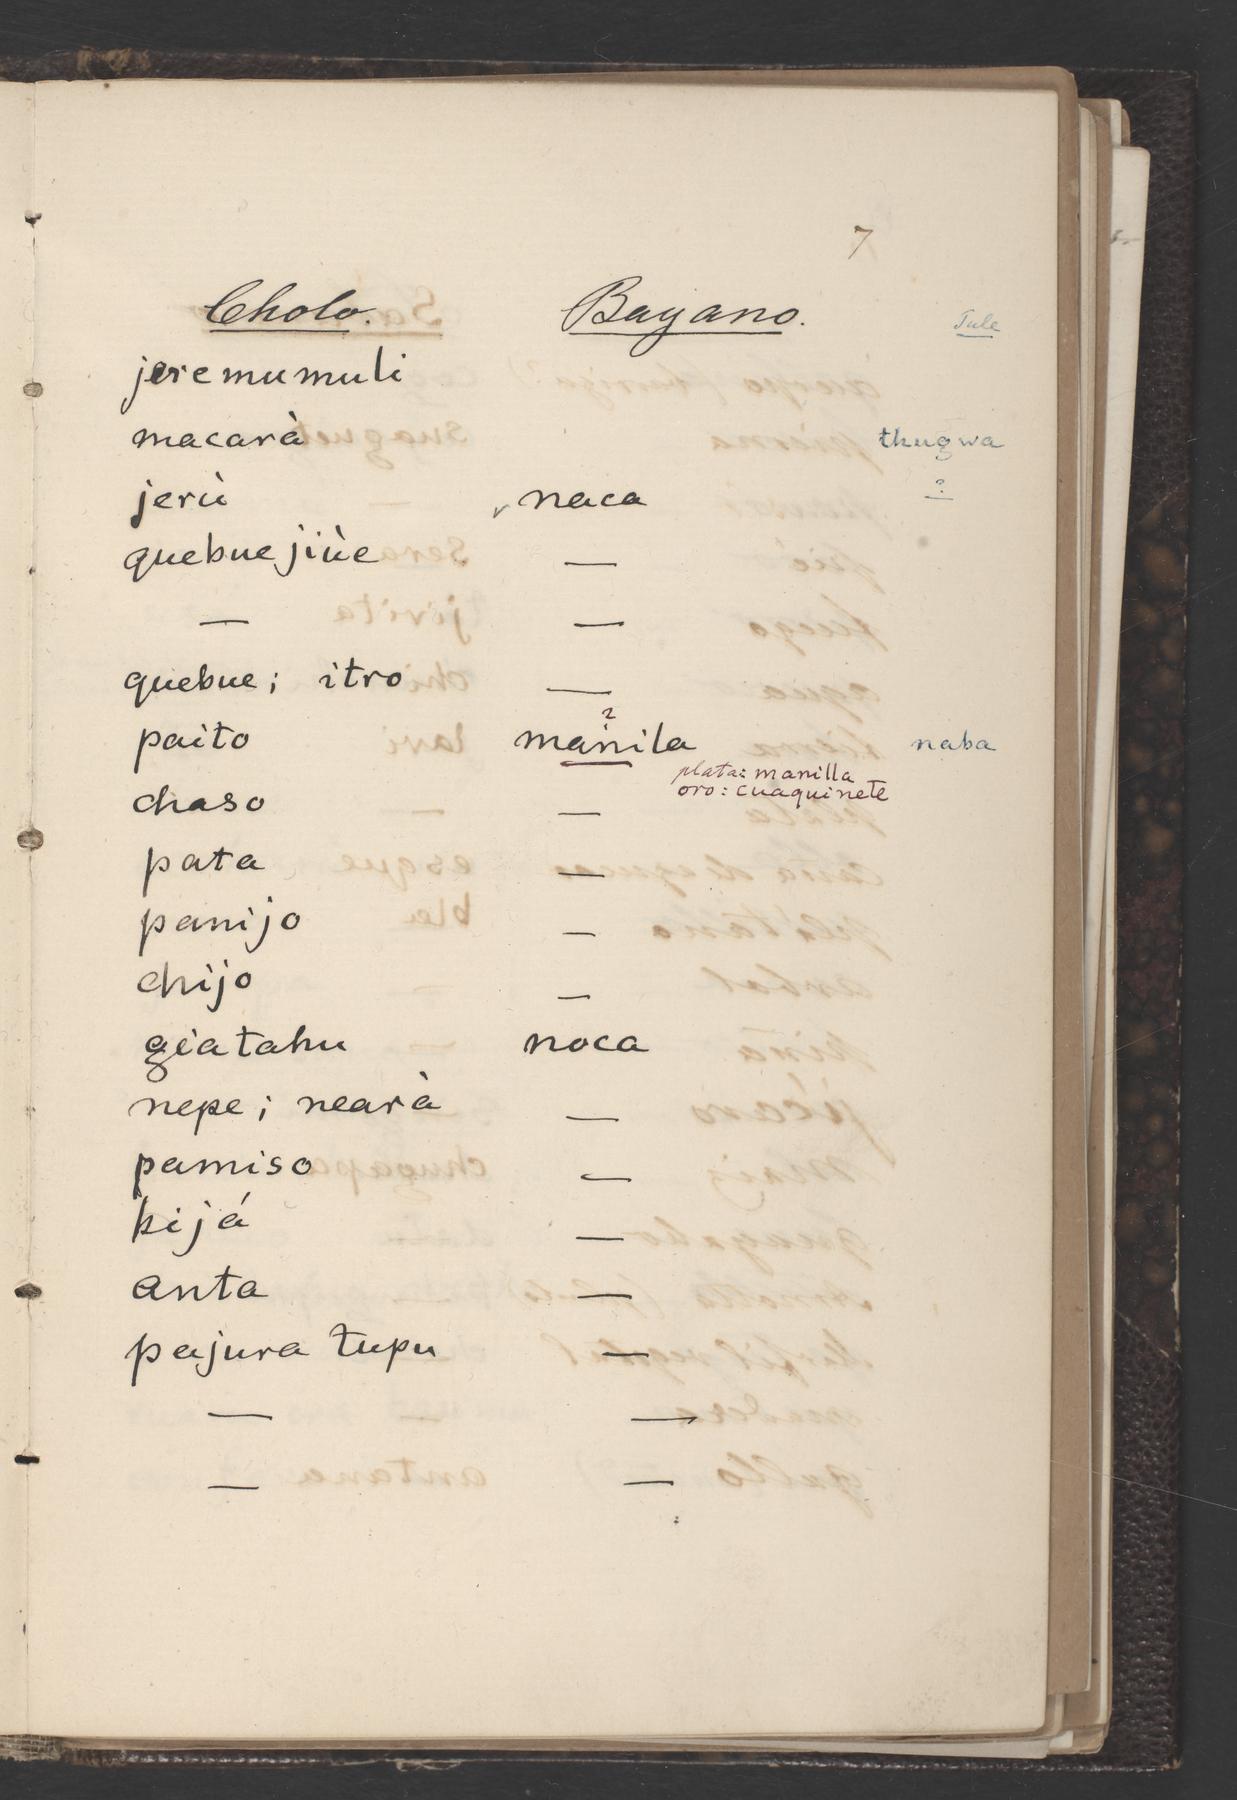 7
Cholo. Bayano. Tule
jeremumuli
macarà thugwa
jerù naca ?
quebuejiùe —
— —
quebue; itro —
?
paito manila naba
plata: manilla
oro: cuaquinete
chaso —
pata —
panijo —
chijo —
giatahu noca
nepe; nearà —
pamiso —
kijá —
anta —
pajura tupu —
— —
— —